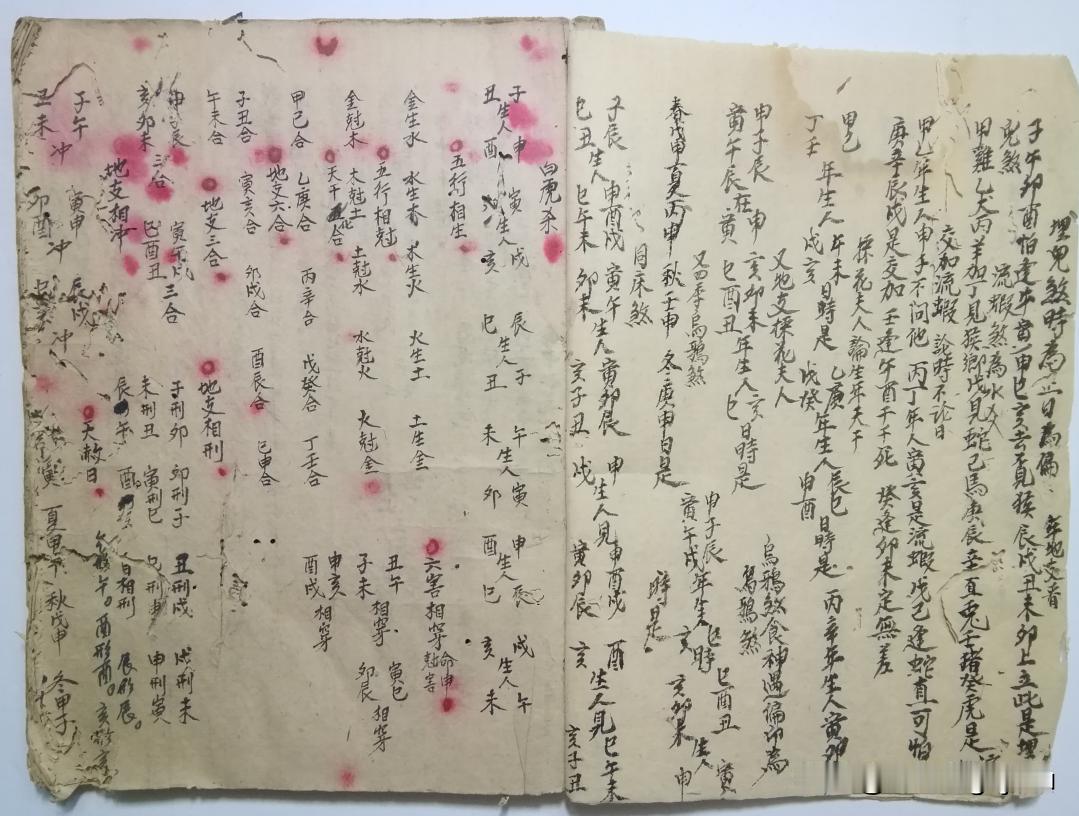 埋兒煞時為正日為偏 年地支看
子午卯酉怕逢牛寅申巳亥去見猴辰戌丑未卯上立此是埋
兒煞 流蝦煞為水火
甲雞乙犬丙羊加丁見猴鄉戊見蛇己馬庚辰辛直兎壬猪癸虎是
交加流蝦 論時不論日
甲乙年生人申子不問他 丙丁年人寅亥是流蝦戊己逢蛇直可怕
庚辛辰戌是交加 壬逢午酉千千死 癸逢卯未定無差
採花夫人論生年天干
甲己 年生人 午未日時是 乙庚 年生人辰巳日時是 丙辛年生人寅卯
丁壬 戌亥 戊癸 申酉
又地支採花夫人
申子辰 申 亥卯未 年生人亥日時是
寅午辰在寅 巳酉丑 巳
烏鴉煞食神遇偏印為
又四季烏鴉煞 烏鴉煞
春戊申夏丙申 秋壬申 冬庚申日是
申子辰 巳時 巳酉丑 寅
寅午戌年生人亥 亥卯未生人申
時是
同床煞
子辰生人申酉戌 寅午生人寅卯辰 申生人見申酉戌 酉生人見巳午未
巳丑 巳午未 卯未 亥子丑 戌 寅卯辰 亥 亥子丑
白虎殺
子生人申 寅生人戌 辰生人子 午生人寅 申生人辰 戌生人午
丑 酉 亥 巳生人丑 未 卯 酉 巳 亥 未
五行相生
金生水 水生木 木生火 火生土 土生金
五行相尅
金尅木 木尅土 土尅水 水尅火 火尅金
天干五化合
甲己合 乙庚合 丙辛合 戊癸合 丁壬合
地支六合
子丑合 寅亥合 卯戌合 酉辰合 巳申合
午未合
六害相穿 命申尅害
丑午 相穿 寅巳
子未 卯辰 相穿
申亥 相穿
酉戌
地支三合
申子辰 三合 寅午戌 三合
亥卯未 巳酉丑
地支相刑
子刑卯 卯刑子 丑刑戌 戌刑未
未刑丑 寅刑巳 巳刑申 申刑寅
辰 午 酉 自相刑 辰形辰。
午。酉形酉。亥
地支相冲
子午 冲 寅申 冲 辰戌 冲
丑未 卯酉 巳
天赦日
夏甲午 秋戊申 冬甲子